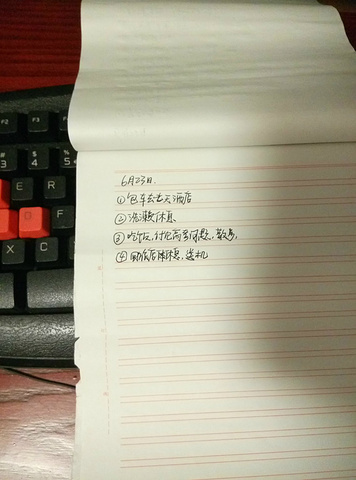 6月23日.
①包车去 天酒店
②洗漱休息
③吃饭,讨论 问题,散步,
④回酒店休息,送机
F2 F3
# $ %
3 4 5
E R
D F
X C